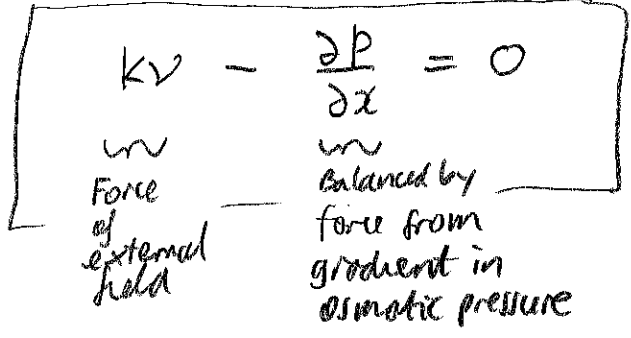 kν − ∂p/∂x = 0
Force
of
external
field
Balanced by
force from
gradient in
osmotic pressure